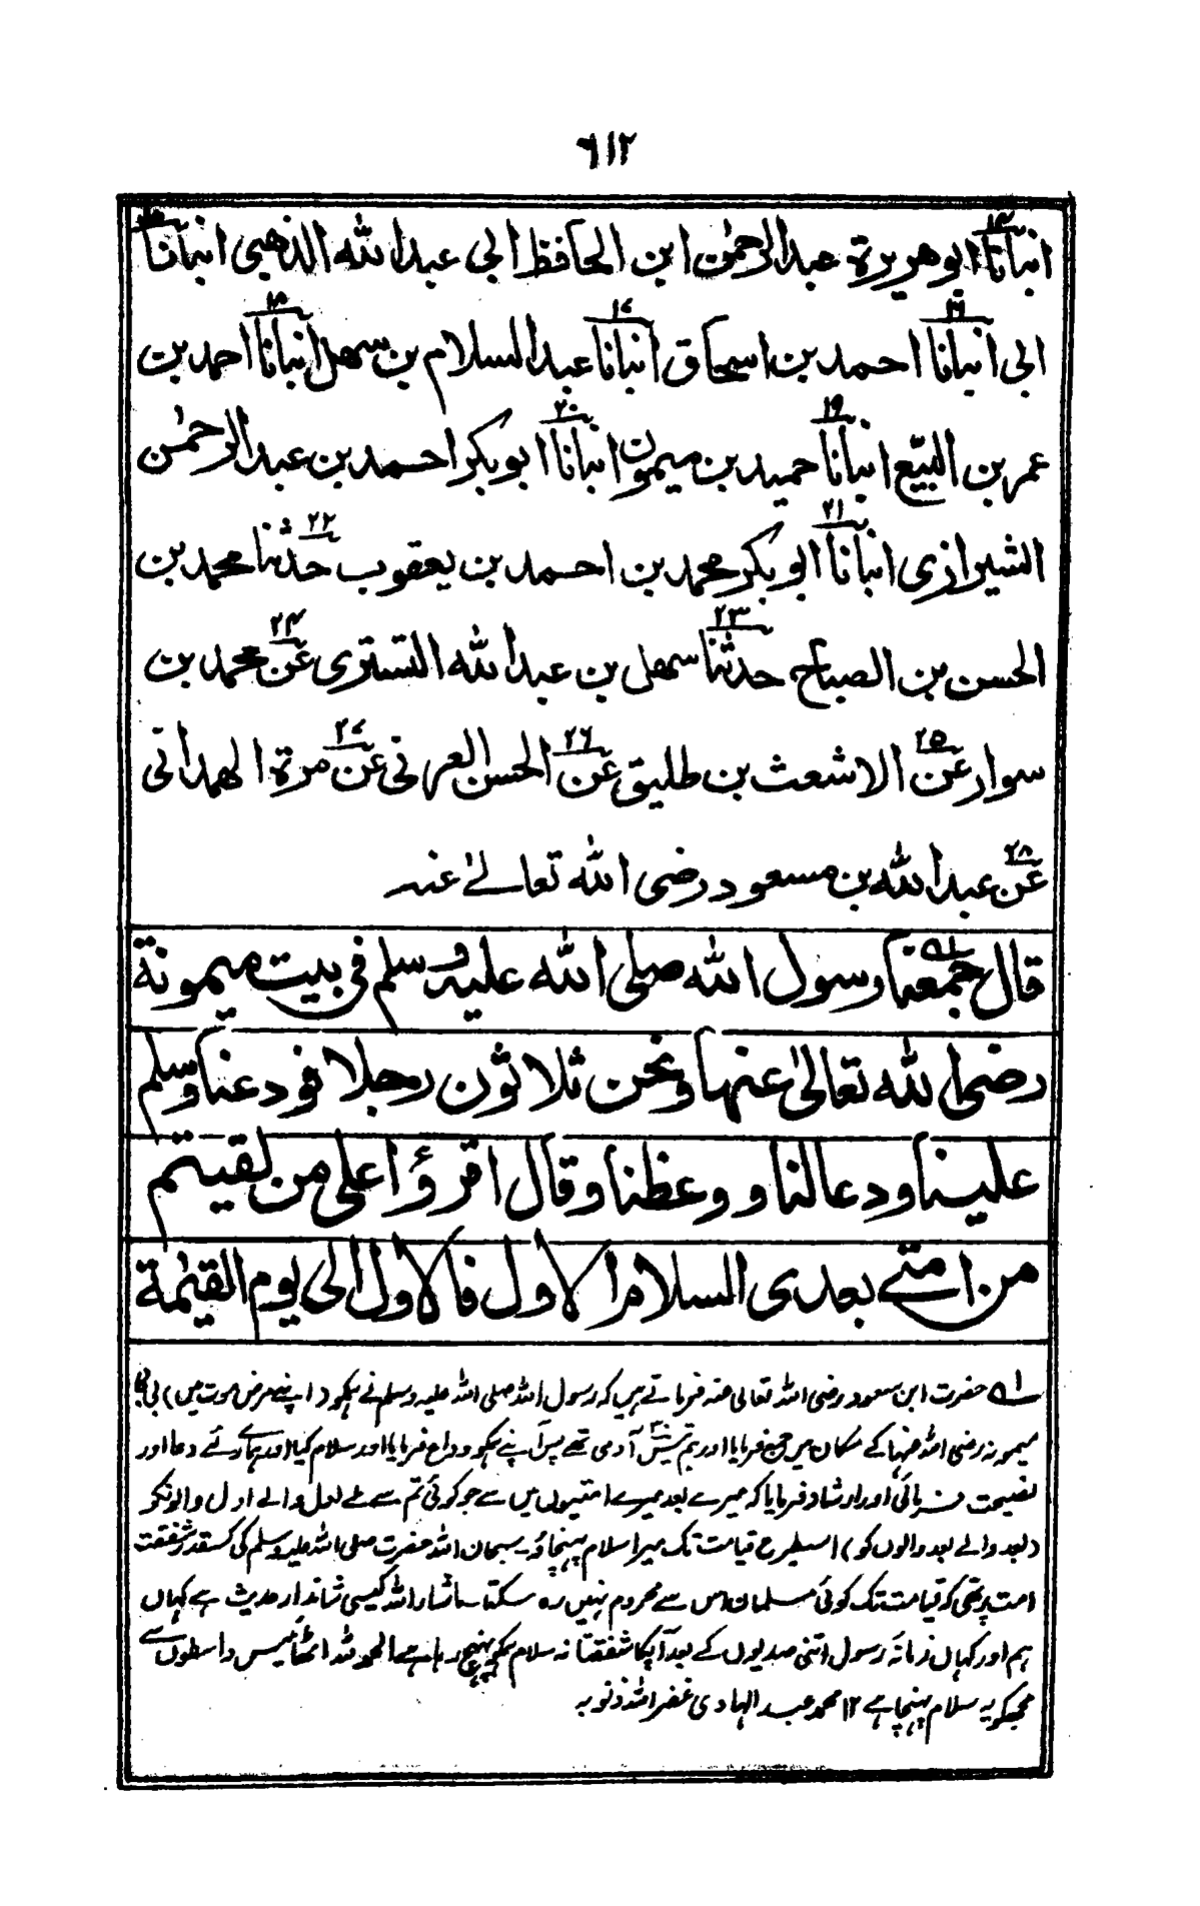 ٦١٢
انبأنا ابو هريرة عبد الرحمٰن ابن الحافظ ابي عبد الله الذهبي انبأنا
ابي انبأنا احمد بن اسحاق انبأنا عبد السلام بن سهل انبأنا احمد بن
عمر بن البيّع انبأنا حميد بن ميمون انبأنا ابو بكر احمد بن عبد الرحمٰن
الشيرازی انبأنا ابو بكر محمد بن احمد بن يعقوب حدثنا محمد بن
الحسن بن الصباح حدثنا سهل بن عبد الله التستری عن محمد بن
سوار عن الاشعث بن طليق عن الحسن العرني عن مرة الهمدانی
عن عبد الله بن مسعود رضی الله تعالےٰ عنه
قال جمعنا رسول الله صلی الله عليه وسلم فی بيت ميمونة
رضی الله تعالیٰ عنها ونحن ثلاثون رجلا فودعنا وسلم
علينا ودعا لنا و وعظنا وقال اقرؤا علی من لقيتم
من امتے بعدی السلام الاول فالاول الی يوم القيٰمة
١ے حضرت ابن مسعود رضی اللہ تعالی عنہ فرماتے ہیں کہ رسول اللہ صلی اللہ علیہ وسلم نے ہمکو (اپنے مرض موت میں) بی بی
میمونہ رضی اللہ عنہا کے مکان میں جمع فرمایا اور ہم تیس ٣٠ آدمی تھے پس آپنے ہمکو وداع فرمایا اور سلام کیا اور ہمارے لئے دعا اور
نصیحت فرمائی اور ارشاد فرمایا کہ میرے بعد میرے امتیوں میں سے جو کوئی تم سے ملے اول والے اول والونکو
(بعد والے بعد والوں کو) اسیطرح قیامت تک میرا سلام پہنچاؤ۔ سبحان اللہ حضرت صلی اللہ علیہ وسلم کی کسقدر شفقت
امت پر تھی کہ قیامت تک کوئی مسلمان اس سے محروم نہیں رہ سکتا ماشاء اللہ کیسی شاندار حدیث ہے کہاں
ہم اور کہاں زمانۂ رسول اتنی صدیوں کے بعد آپکا شفقتانہ سلام ہمکو پہنچ رہا ہے الحمد للہ اٹھائیس واسطوں سے
مجھکو یہ سلام پہنچا ہے ١٢ محمد عبد الہادی غفر اللہ ذنوبہ